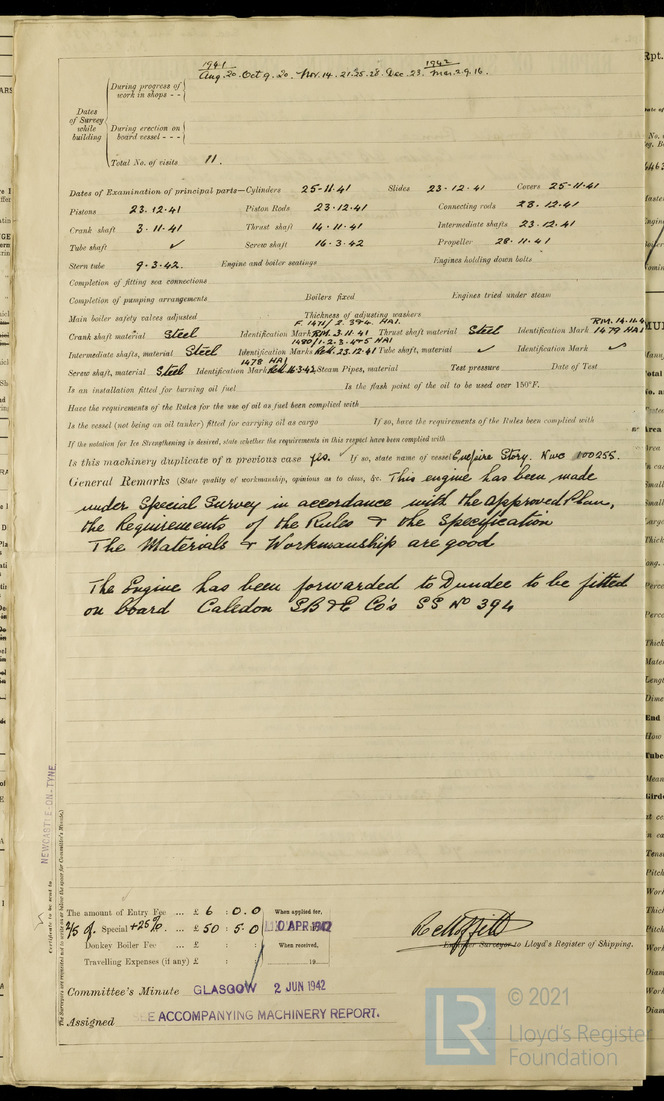 1941 1942
Aug. 20. Oct 9. 20. Nov. 14. 21. 25. 28. Dec. 23. Mar. 2. 9. 16.
During progress of work in shops - -
Dates of Survey while building
During erection on board vessel - - -
Total No. of visits 11.
Dates of Examination of principal parts—Cylinders 25-11-41 Slides 23.12.41 Covers 25-11-41
Pistons 23.12.41 Piston Rods 23.12.41 Connecting rods 23.12.41
Crank shaft 3.11.41 Thrust shaft 14.11.41 Intermediate shafts 23.12.41
Tube shaft ✓ Screw shaft 16.3.42 Propeller 28.11.41
Stern tube 9.3.42. Engine and boiler seatings Engines holding down bolts
Completion of fitting sea connections
Completion of pumping arrangements Boilers fixed Engines tried under steam
Main boiler safety valves adjusted Thickness of adjusting washers
F. 1471/ 2. 3 & 4. HAI. RM. 14.11.4
Crank shaft material Steel Identification Mark RM. 3.11.41 Thrust shaft material Steel Identification Mark 1479 HAI
1480/1.2.3.4 & 5 HAI
Intermediate shafts, material Steel Identification Marks 23.12.41 Tube shaft, material ✓ Identification Mark ✓
1478 HAI
Screw shaft, material Steel Identification Mark 16.3.42 Steam Pipes, material Test pressure Date of Test
Is an installation fitted for burning oil fuel Is the flash point of the oil to be used over 150°F.
Have the requirements of the Rules for the use of oil as fuel been complied with
Is the vessel (not being an oil tanker) fitted for carrying oil as cargo If so, have the requirements of the Rules been complied with
If the notation for Ice Strengthening is desired, state whether the requirements in this respect have been complied with
Is this machinery duplicate of a previous case yes. ✓ If so, state name of vessel Empire Story. Nwc 100255.
General Remarks (State quality of workmanship, opinions as to class, &c. This engine has been made
under Special Survey in accordance with the approved Plans,
the Requirements of the Rules & the Specification
The Materials & Workmanship are good
The Engine has been forwarded to Dundee to be fitted
on board Caledon SB & E Co's SS No 394
NEWCASTLE-ON-TYNE
Certificate to be sent to
The Surveyors are requested not to write on or below the space for Committee's Minute.
The amount of Entry Fee ... £ 6 : 0.0 When applied for,
2/5 of. Special +25% ... £ 50 : 5.0 10 APR 1942
Donkey Boiler Fee ... £ : : When received,
Travelling Expenses (if any) £ : : 19
Engineer Surveyor to Lloyd's Register of Shipping.
Committee's Minute GLASGOW 2 JUN 1942
Assigned SEE ACCOMPANYING MACHINERY REPORT.
LR © 2021
Lloyd's Register
Foundation
Rpt.